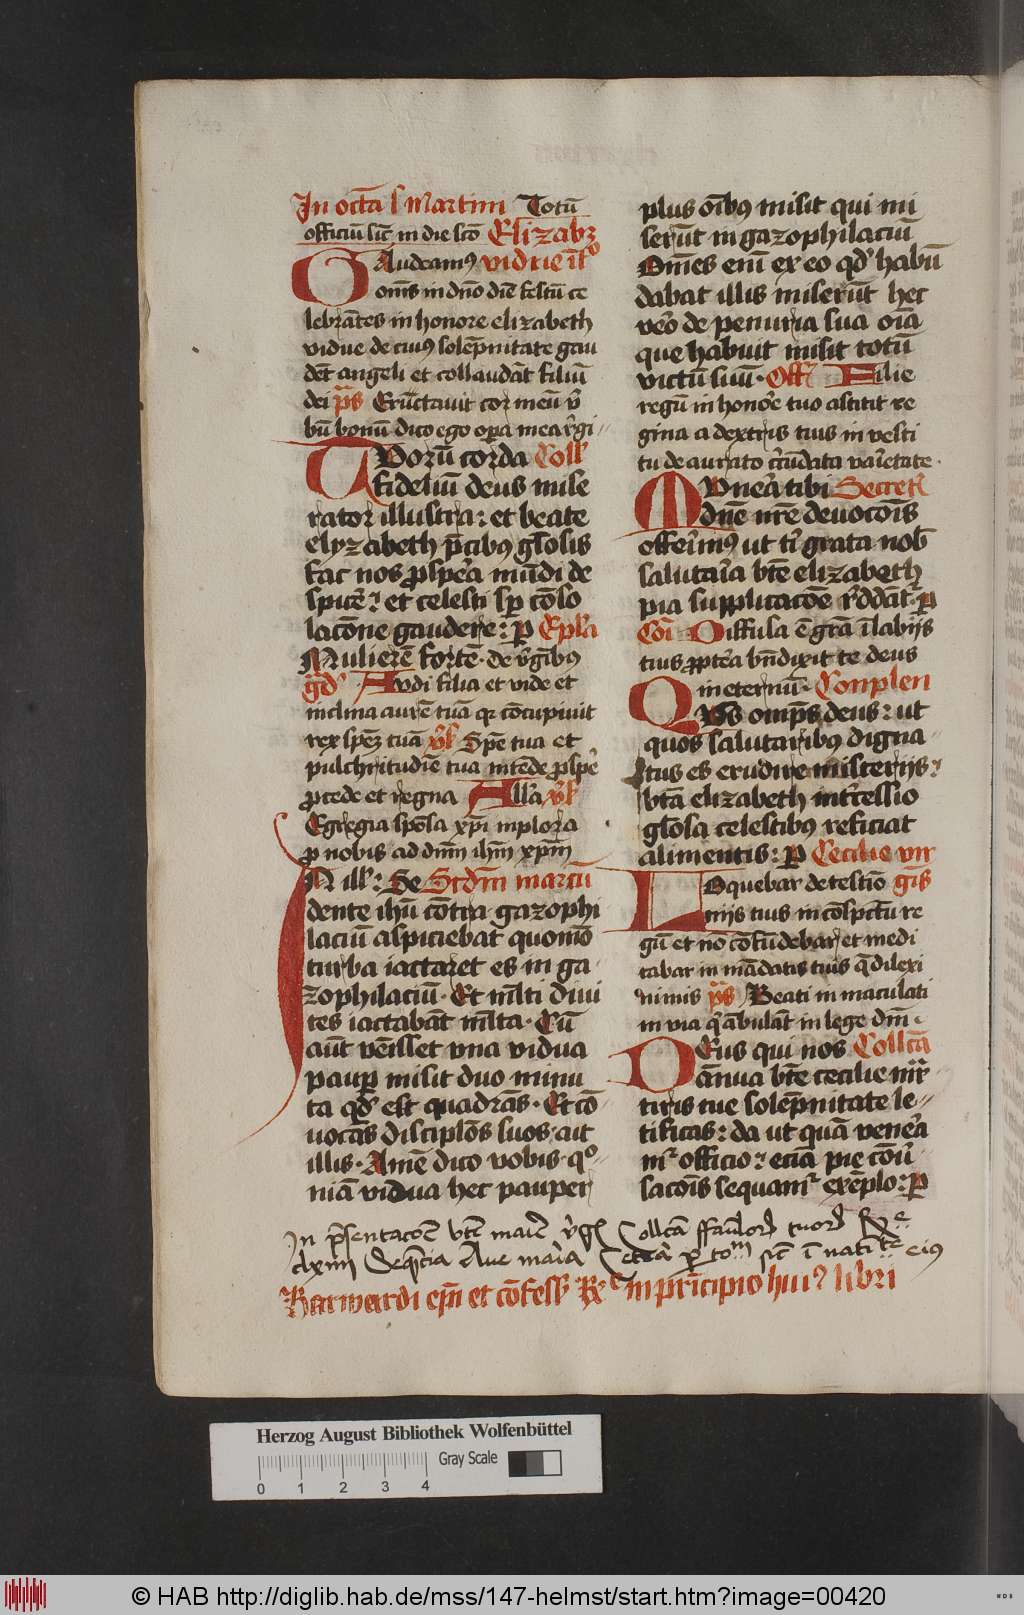 In octa s Martini Totū
officiū sic̄ in die scō Elizabꝫ
GAudeamꝰ vidue ītᵒ
om̄s in dn̄o diē festū ce
lebrātes in honore elizabeth
vidue de cuiꝰ solēpnitate gau
dēt angeli et collaudāt filiū
dei p̄s Eructauit cor meū v̄
bū bonū dico ego opa mea r̄gi
TUorū corda Coll̄
fideliū deus mise
rator illustra: et beate
elyzabeth p̄cibꝰ gl̄osis
fac nos ꝓspera mūdi de
spicē: et celesti sp̄ cōso
lacōne gaudere: ꝑ Ep̄la
Mulierē fortē. de v̄gībꝰ
g̅d Audi filia et vide et
inclina aurē tuā qr cōcupiuit
rex speꝫ tuā v̄s Spē tua et
pulchritudīe tua intēde ꝓspē
ꝓcede et regna All̄a v̄s
Egregia spōsa xp̄i inplora
ꝓ nobis ad dn̄m ih̄m xp̄m
In ill̄: Se Scdm̄ marcū
dente ih̄u cōtra gazophi
laciū aspiciebat quomō
turba iactaret es in ga
zophilaciū. Et ml̄ti diui
tes iactabāt ml̄ta. Cū
aūt vēisset vna vidua
pauꝑ misit duo minu
ta qd̄ est quadrās. Et cō
uocās discipl̄os suos ait
illis. Amē dico vobis. qᵒ
niā vidua hec pauper
plus oībꝰ misit qui mi
serūt in gazophilaciū
Om̄es enī ex eo qd̄ habū
dabat illis miserūt hec
vero de penuria sua oīa
que habuit misit totū
victū suū. Off̄ Filie
regū in honore tuo astitit re
gina a dextris tuis in vesti
tu deaurato c̄cūdata vaīetate.
MUnera tibi Secret̄
dn̄e nr̄e deuocōis
offerimꝰ ut ti grata nob̄
salutaria bt̄e elizabeth
pia supplicacōe r̄ddāt. ꝑ
Cōi Diffusa ē grā ī labijs
tuis ꝓptēa bn̄dixit te deus
in eternū. Conplen
QUs omp̄s deus: ut
quos salutaribus digna
tus es erudire misterijs:
bt̄a elizabeth int̄cessio
gl̄osa celestibus reficiat
alimentis: ꝑ Cecilie vir
LOquebar de testīo gīs
niis tuis in cōspctū re
gū et nō cōfūdebar et medi
tabar in mādatis tuis q̄ dilexi
nimis p̄s Beati inmaculati
in via q ābulāt in lege dn̄i
DEus qui nos Coll̄cā
ānua bt̄e cecilie mr̄
tiris tue solēpnitate le
tificas: da ut quā venera
mꝰ officio: eciā pie cōū
sacōis sequamꝰ exēplo: ꝑ
In p̄sentacōe bt̄e marie v̄gīs Coll̄cā ffamulorꝫ tuorꝫ Re
clxiiii Sequēcia Aue maria Cetera ꝑ totū sic̄ ī natītᵉ eiꝰ
Barwardi ep̄i et cōfess̄ Reᵉ in prīcipio huiꝰ libri
Herzog August Bibliothek Wolfenbüttel
Gray Scale
0 1 2 3 4
© HAB http://diglib.hab.de/mss/147-helmst/start.htm?image=00420